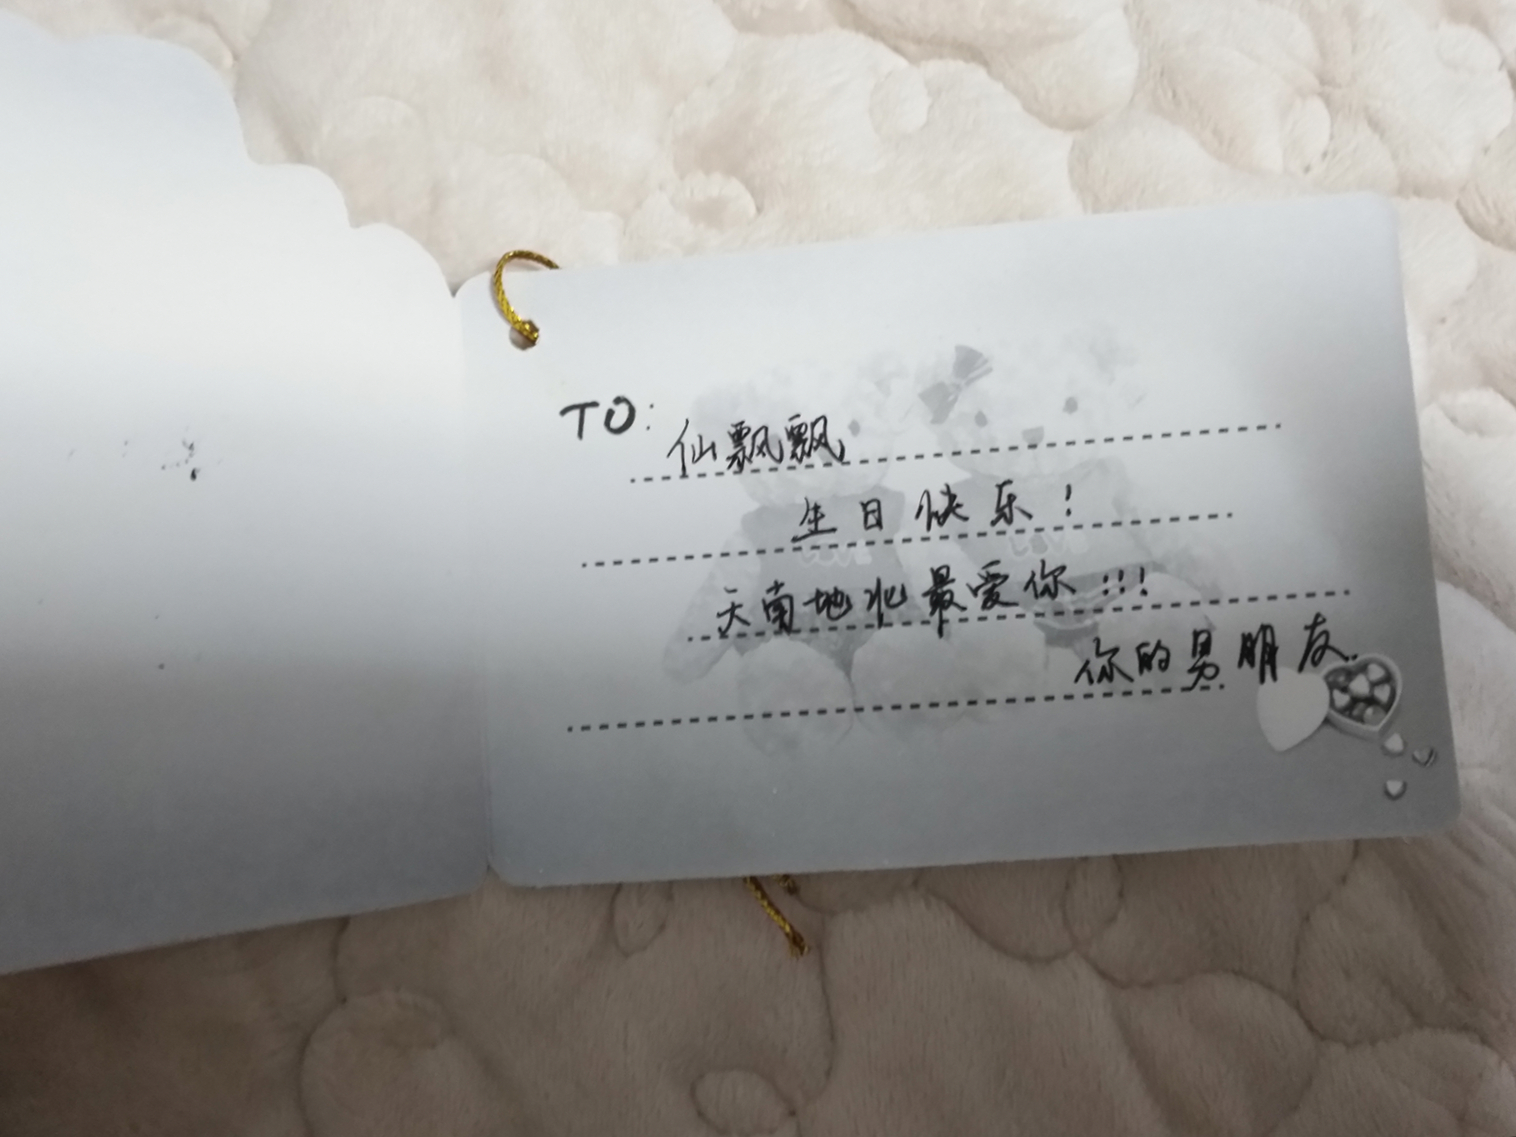 TO: 仙飘飘
生日快乐！
天南地北最爱你!!!
你的男朋友.
LOVE LOVE